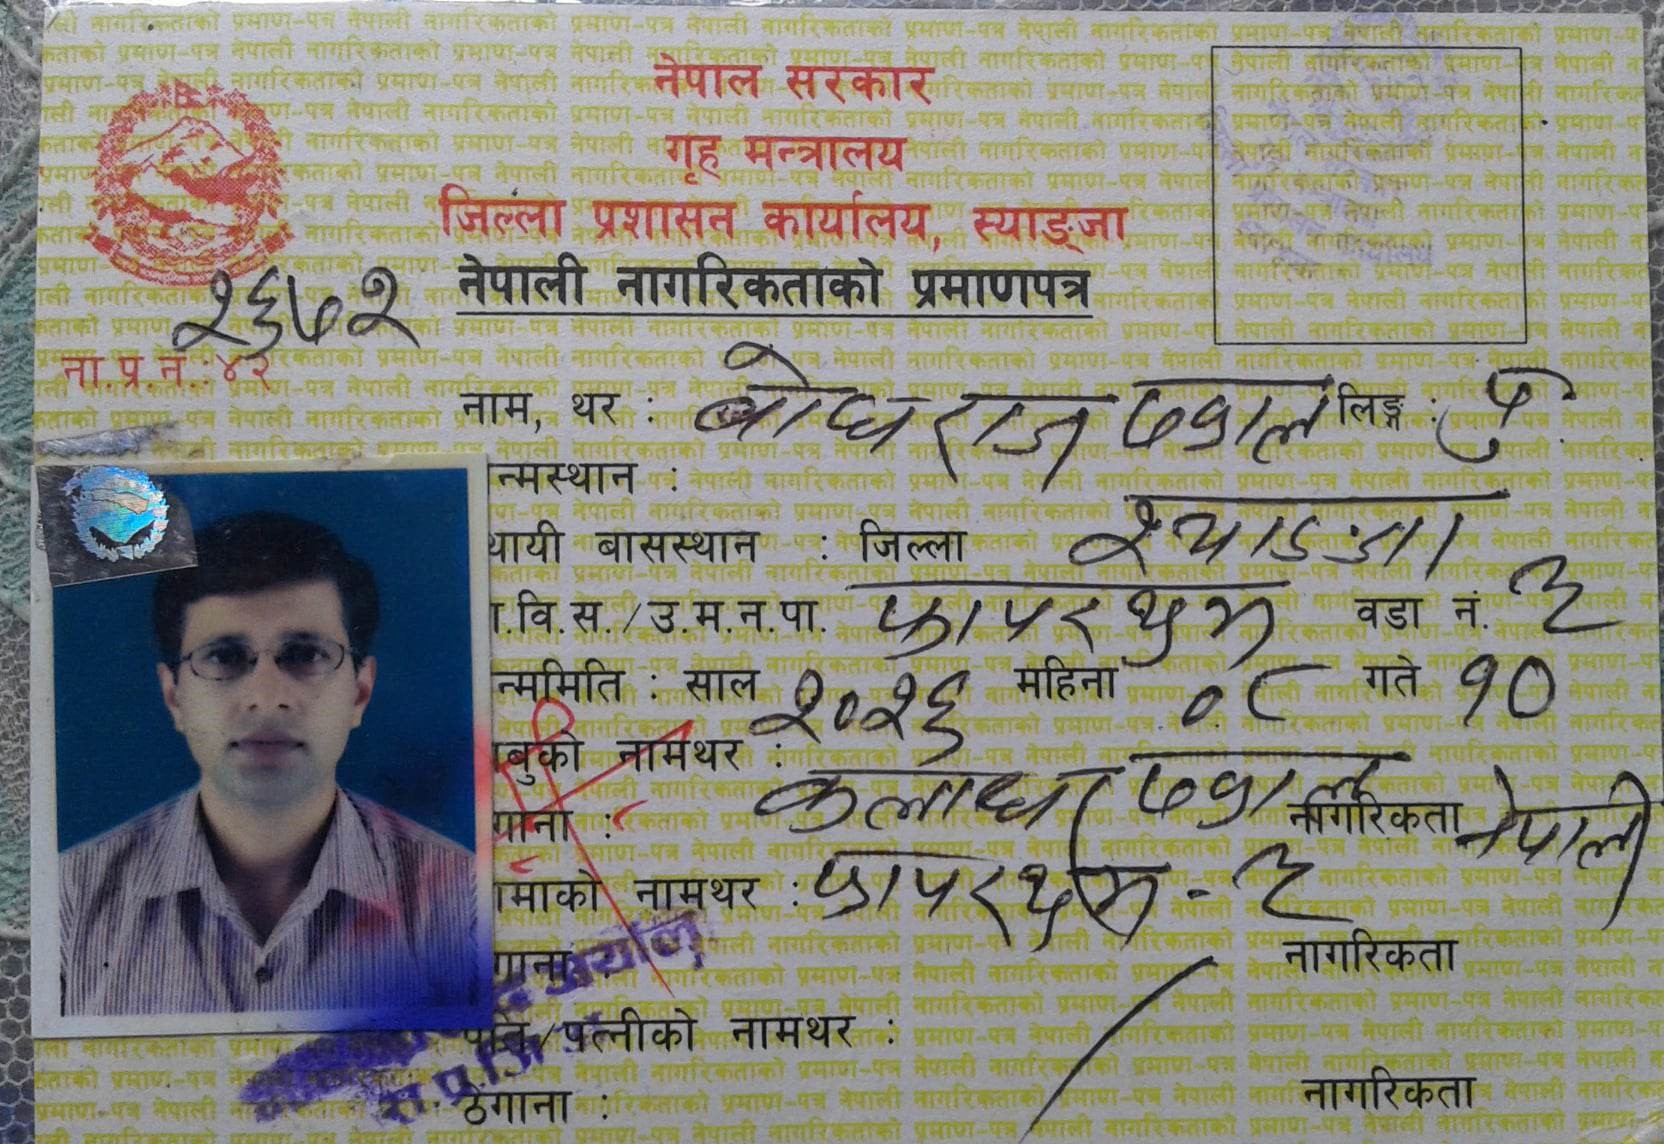 नेपाल सरकार
गृह मन्त्रालय
जिल्ला प्रशासन कार्यालय, स्याङ्जा
नेपाली नागरिकताको प्रमाणपत्र
२६७२
ना.प्र.नं.:४२
नाम, थर : बोधराज ढकाल लिङ्ग : पु.
न्मस्थान :
थायी बासस्थान : जिल्ला स्याङजा
.वि.स./उ.म.न.पा. फापरथुम वडा नं. ३
न्ममिति : साल २०२६ महिना ०८ गते १०
बुको नामथर : कलाधर ढकाल
गाना : फापरथुम - ३ नागरिकता नेपाली
माको नामथर :
गाना नागरिकता
पति/पत्नीको नामथर :
ठेगाना : नागरिकता